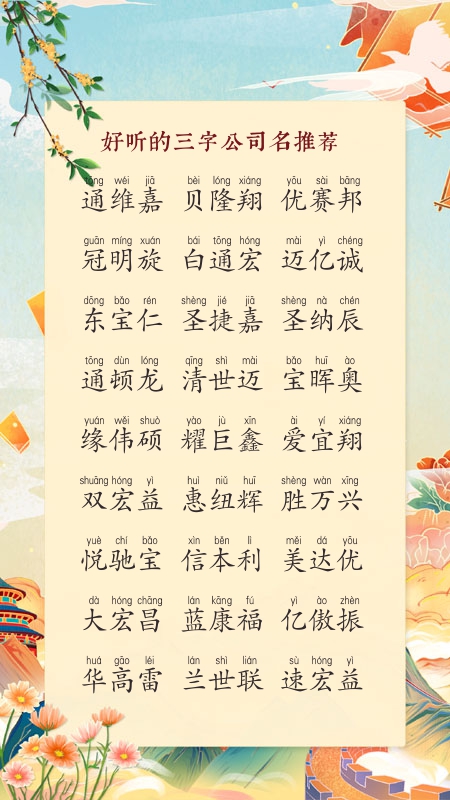 好听的三字公司名推荐
tōng wéi jiā bèi lóng xiáng yōu sài bāng
通维嘉 贝隆翔 优赛邦
guān míng xuán bái tōng hóng mài yì chéng
冠明旋 白通宏 迈亿诚
dōng bǎo rén shèng jié jiā shèng nà chén
东宝仁 圣捷嘉 圣纳辰
tōng dùn lóng qīng shì mài bǎo huī ào
通顿龙 清世迈 宝晖奥
yuán wěi shuò yào jù xīn ài yí xiáng
缘伟硕 耀巨鑫 爱宜翔
shuāng hóng yì huì niǔ huī shèng wàn xīng
双宏益 惠纽辉 胜万兴
yuè chí bǎo xìn běn lì měi dá yōu
悦驰宝 信本利 美达优
dà hóng chāng lán kāng fú yì ào zhèn
大宏昌 蓝康福 亿傲振
huá gāo léi lán shì lián sù hóng yì
华高雷 兰世联 速宏益